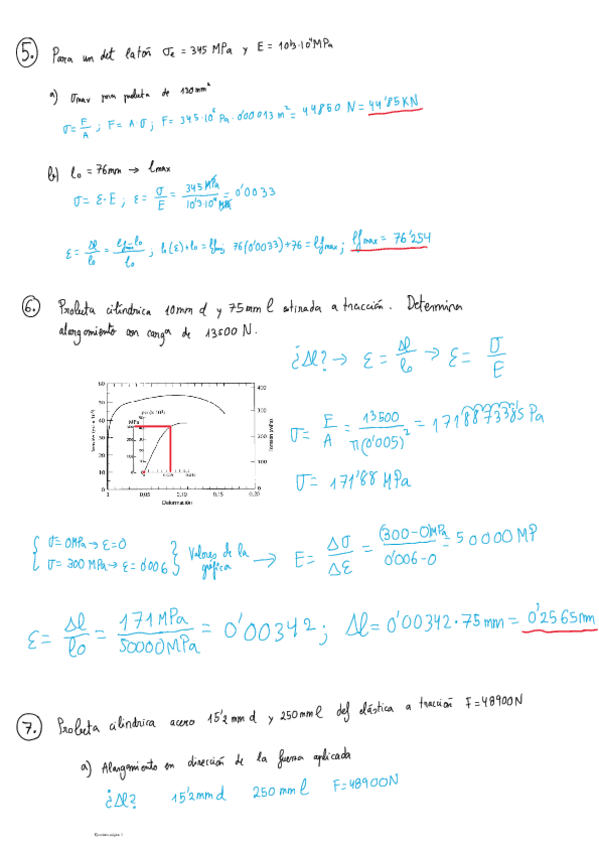 5. Para un det latón σe = 345 MPa y E = 10'3·10⁴ MPa
a) σmax para probeta de 130mm²
σ = F/A ; F = A·σ ; F = 345·10⁶ Pa · 0'00013 m² = 44850 N = 44'85 KN
b) l₀ = 76mm → lmax
σ = ε·E ; ε = σ/E = 345 MPa / 10'3·10⁴ MPa = 0'0033
ε = Δl/l₀ = (lf - l₀)/l₀ ; l₀(ε)+l₀ = lf ; 76(0'0033)+76 = lfmax ; lfmax = 76'254
6. Probeta cilíndrica 10mm d y 75mm l estirada a tracción. Determina
alargamiento con carga de 13500 N.
¿Δl? → ε = Δl/l₀ → ε = σ/E
60
50
40
30
20
10
400
300
200
100
0
MPa
Tensión (MPa)
0,05 0,10 0,15 0,20
Deformación
σ = F/A = 13500 / π(0'005)² = 171887338'5 Pa
σ = 171'88 MPa
σ = 0MPa → ε = 0
σ = 300 MPa → ε = 0'006
Valores de la gráfica → E = Δσ/Δε = (300-0)MPa / 0'006-0 = 50000 MP
ε = Δl/l₀ = 171MPa / 50000MPa = 0'00342 ; Δl = 0'00342 · 75 mm = 0'2565 mm
7. Probeta cilíndrica acero 15'2 mm d y 250 mm l def elástica a tracción F = 48900N
a) Alargamiento en dirección de la fuerza aplicada
¿Δl? 15'2 mm d 250 mm l F = 48900N